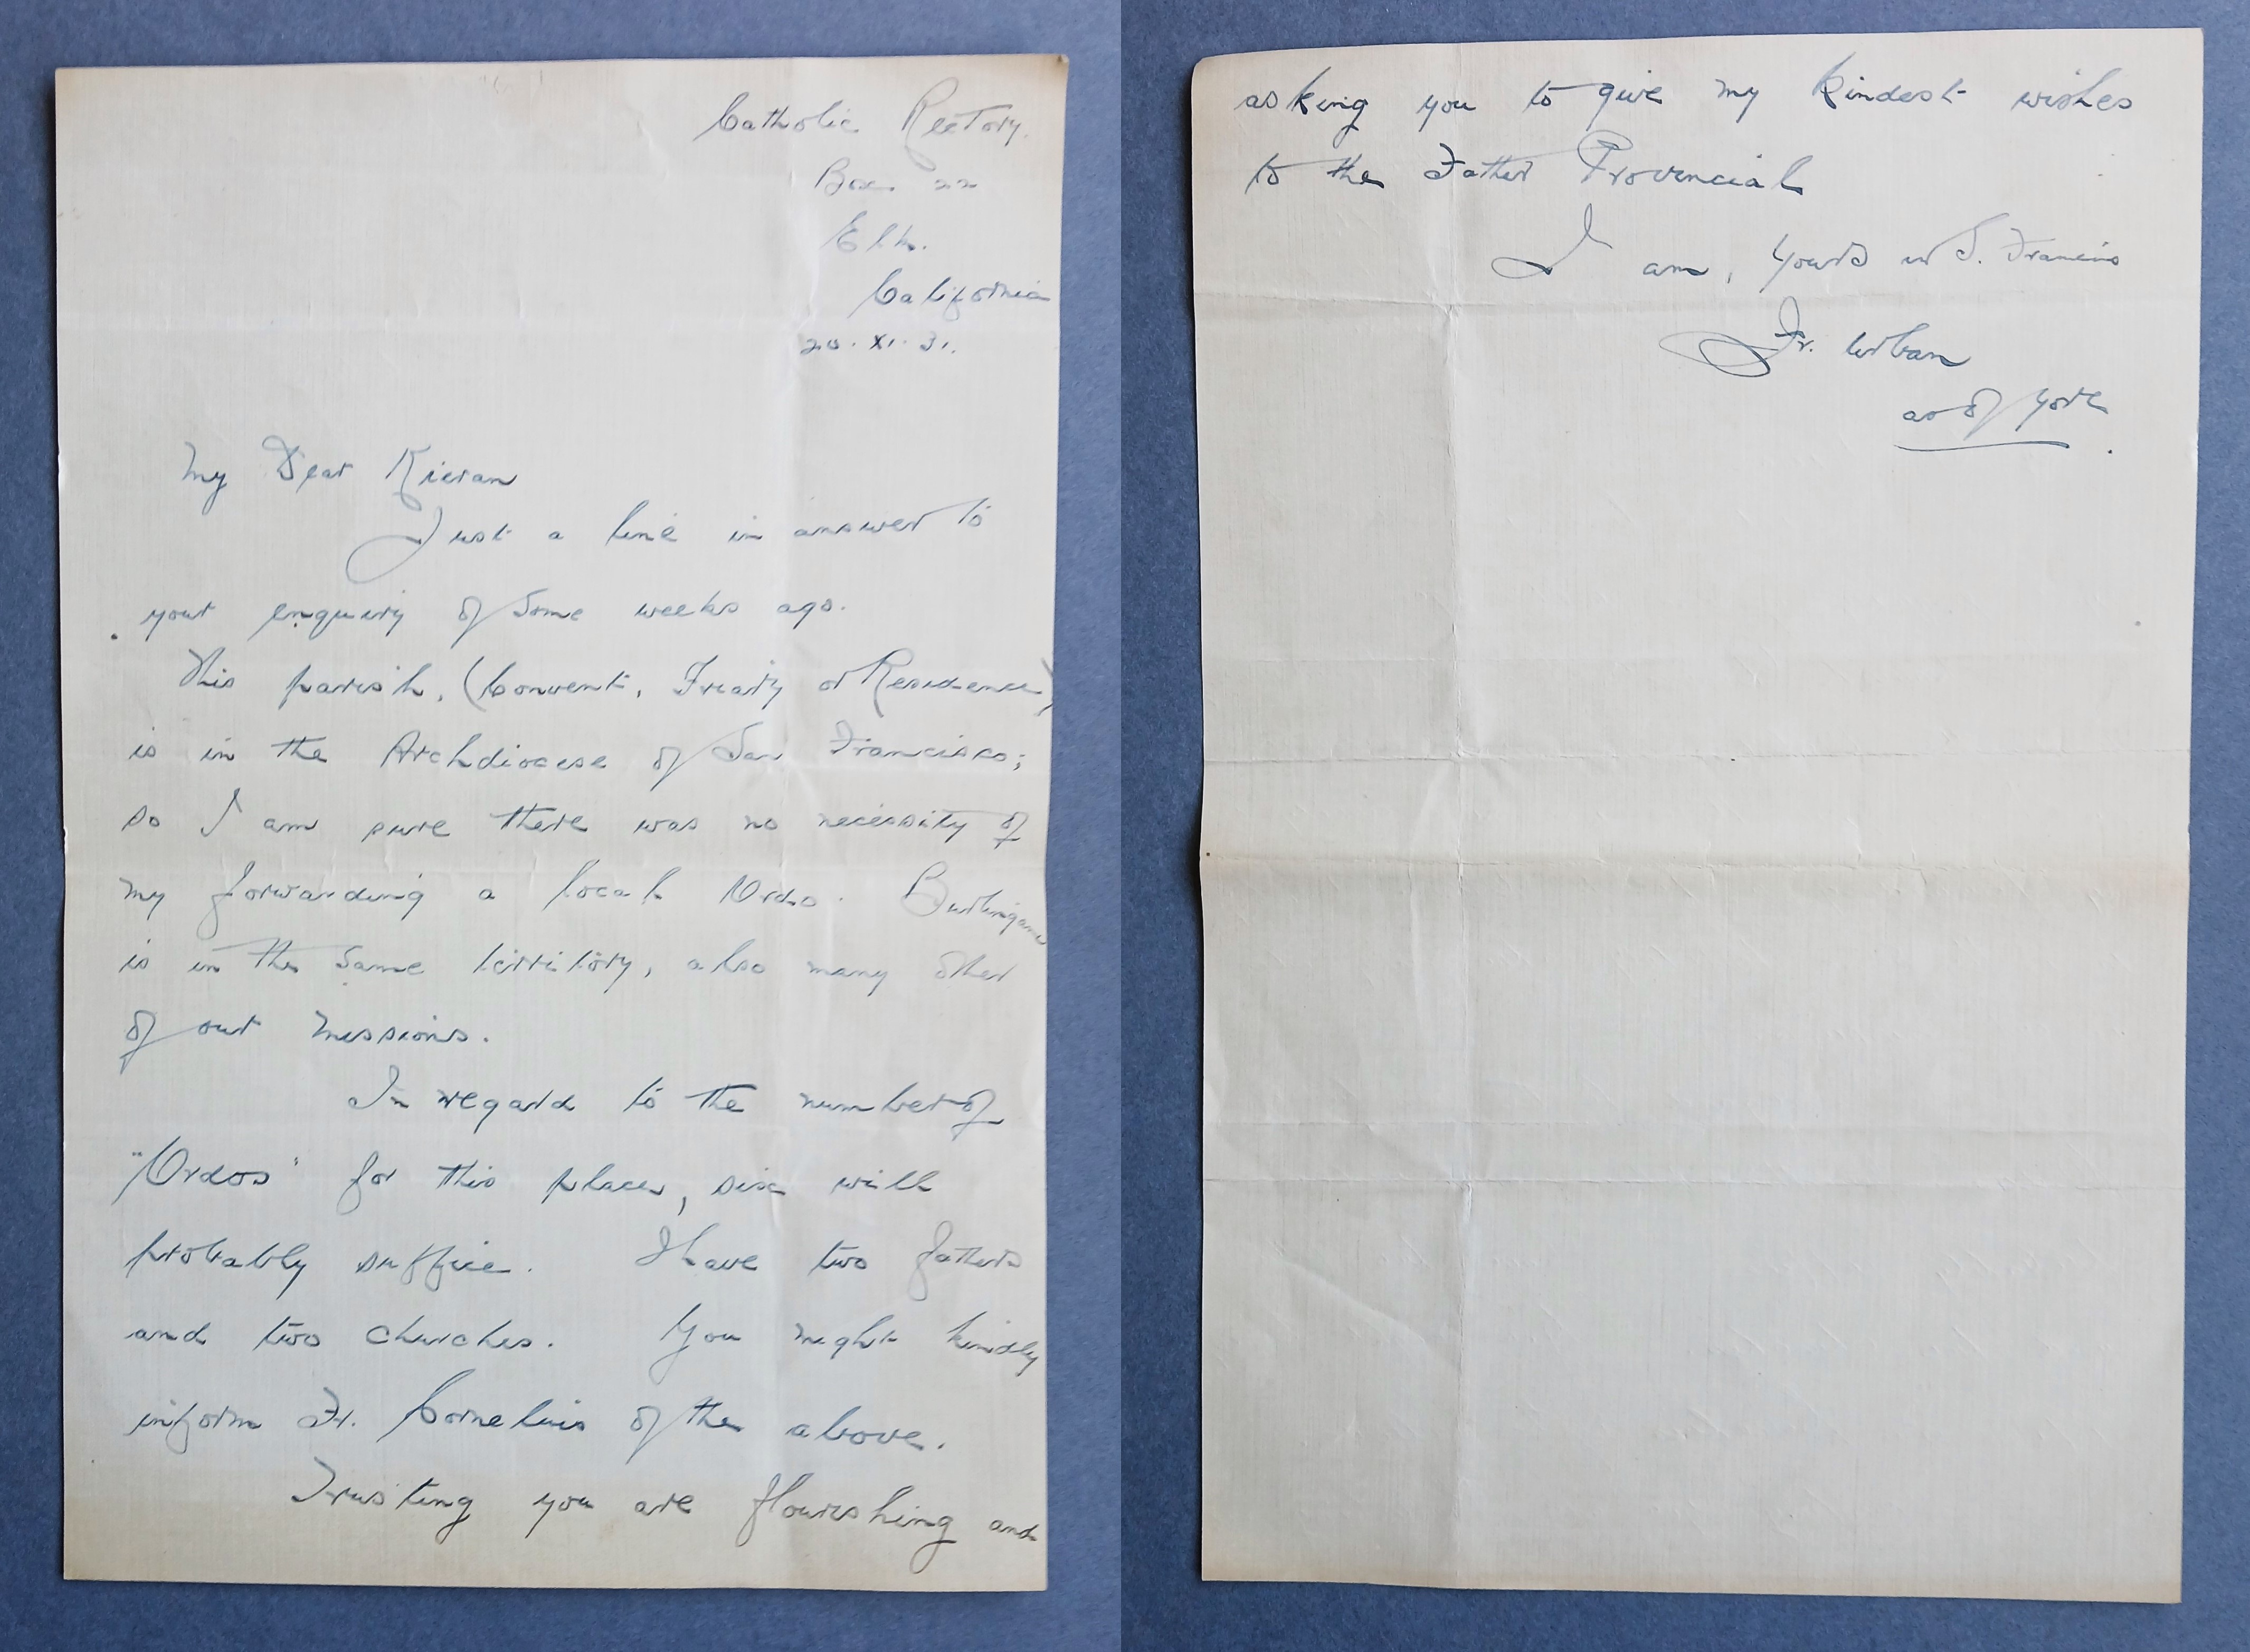 Catholic Rectory.
Box 22
Elk.
California
20. XI. 31.
My Dear Kieran
Just a line in answer to
your enquiry of some weeks ago.
This parish, (Convent, Friary or Residence)
is in the Archdiocese of San Francisco;
so I am sure there was no necessity of
my forwarding a local Ordo. Burlingame
is in the same territory, also many other
of our missions.
In regard to the number of
"Ordos" for this place, six will
probably suffice. I have two fathers
and two churches. You might kindly
inform Fr. Cornelius of the above.
Trusting you are flourishing and
asking you to give my kindest wishes
to the Father Provincial
I am, yours in S. Francis
Fr. Urban
as of yore.